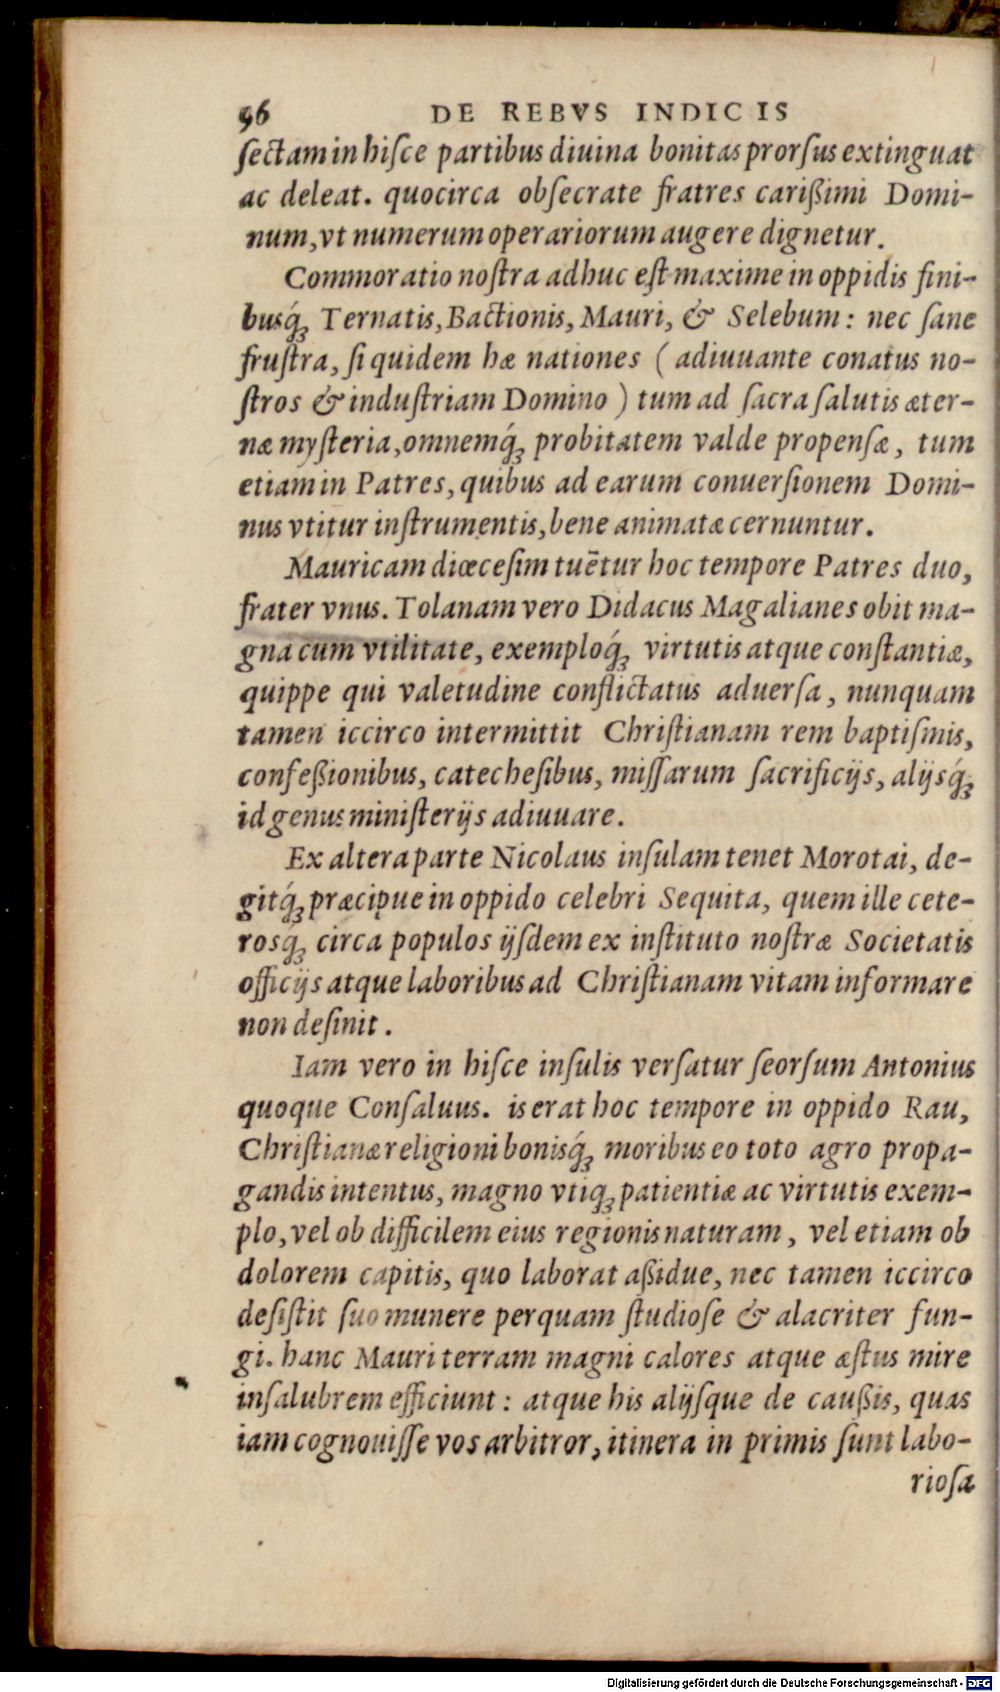 96 DE REBVS INDICIS
ſectam in hiſce partibus diuina bonitas prorſus extinguat
ac deleat. quocirca obſecrate fratres carißimi Domi-
num, vt numerum operariorum augere dignetur.
Commoratio noſtra adhuc eſt maxime in oppidis fini-
busq́; Ternatis, Bactionis, Mauri, & Selebum: nec ſane
fruſtra, ſi quidem hæ nationes (adiuuante conatus no-
ſtros & induſtriam Domino) tum ad ſacra ſalutis æter-
næ myſteria, omnemq́; probitatem valde propenſæ, tum
etiam in Patres, quibus ad earum conuerſionem Domi-
nus vtitur inſtrumentis, bene animatæ cernuntur.
Mauricam diœceſim tuētur hoc tempore Patres duo,
frater vnus. Tolanam vero Didacus Magalianes obit ma-
gna cum vtilitate, exemploq́; virtutis atque conſtantiæ,
quippe qui valetudine conflictatus aduerſa, nunquam
tamen iccirco intermittit Chriſtianam rem baptiſmis,
confeßionibus, catecheſibus, miſſarum ſacrificijs, alijsq́;
id genus miniſterijs adiuuare.
Ex altera parte Nicolaus inſulam tenet Morotai, de-
gitq́; præcipue in oppido celebri Sequita, quem ille cete-
rosq́; circa populos ijſdem ex inſtituto noſtræ Societatis
officijs atque laboribus ad Chriſtianam vitam informare
non deſinit.
Iam vero in hiſce inſulis verſatur ſeorſum Antonius
quoque Conſaluus. is erat hoc tempore in oppido Rau,
Chriſtianæ religioni bonisq́; moribus eo toto agro propa-
gandis intentus, magno vtiq; patientiæ ac virtutis exem-
plo, vel ob difficilem eius regionis naturam, vel etiam ob
dolorem capitis, quo laborat aßidue, nec tamen iccirco
deſiſtit ſuo munere perquam ſtudioſe & alacriter fun-
gi. hanc Mauri terram magni calores atque æſtus mire
inſalubrem efficiunt: atque his alijſque de caußis, quas
iam cognouiſſe vos arbitror, itinera in primis ſunt labo-
rioſa
Digitalisierung gefördert durch die Deutsche Forschungsgemeinschaft - DFG